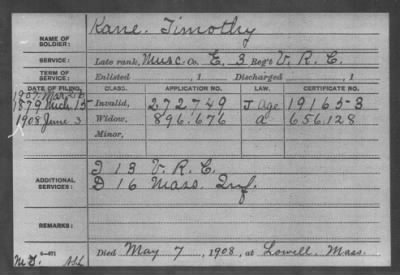 NAME OF SOLDIER: Kane, Timothy
SERVICE: Late rank, Musc. Co. E, 3 Reg't V. R. C.
TERM OF SERVICE: Enlisted , 1 Discharged , 1
DATE OF FILING. CLASS. APPLICATION NO. LAW. CERTIFICATE NO.
1907 Mar
1879 Mch 15 Invalid, 272749 J Age 19165-3
1908 June 3 Widow, 896.676 a 656.128
Minor,
ADDITIONAL SERVICES: I 13 V. R. C.
D 16 Mass. Inf.
REMARKS:
Died May 7, 1908, at Lowell, Mass.